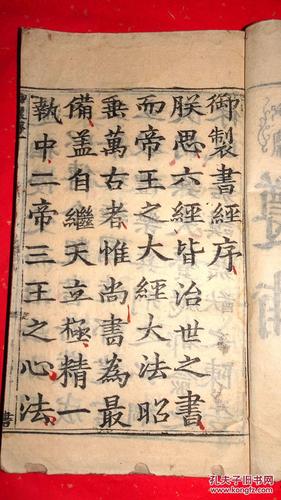 御製書經序
朕思六經皆治世之書
而帝王之大經大法昭
垂萬古者惟尚書為最
備盖自繼天立極精一
執中二帝三王之心法
孔夫子旧书网